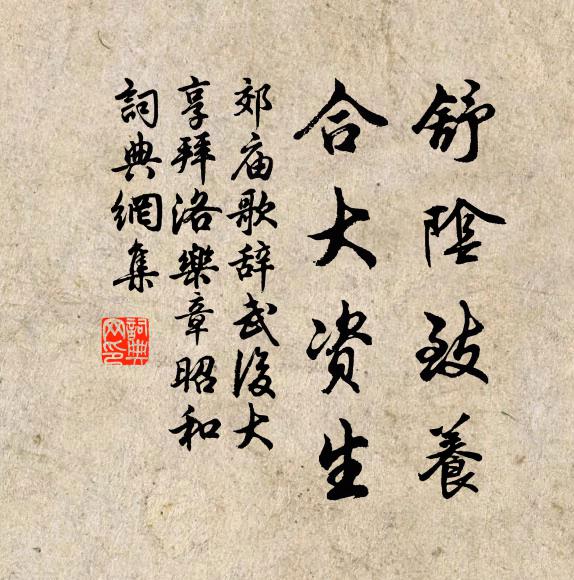 舒陰致養
合大資生
郊庙歌辞武後大
享拜洛樂章昭和
詞典網集
詞典
网印